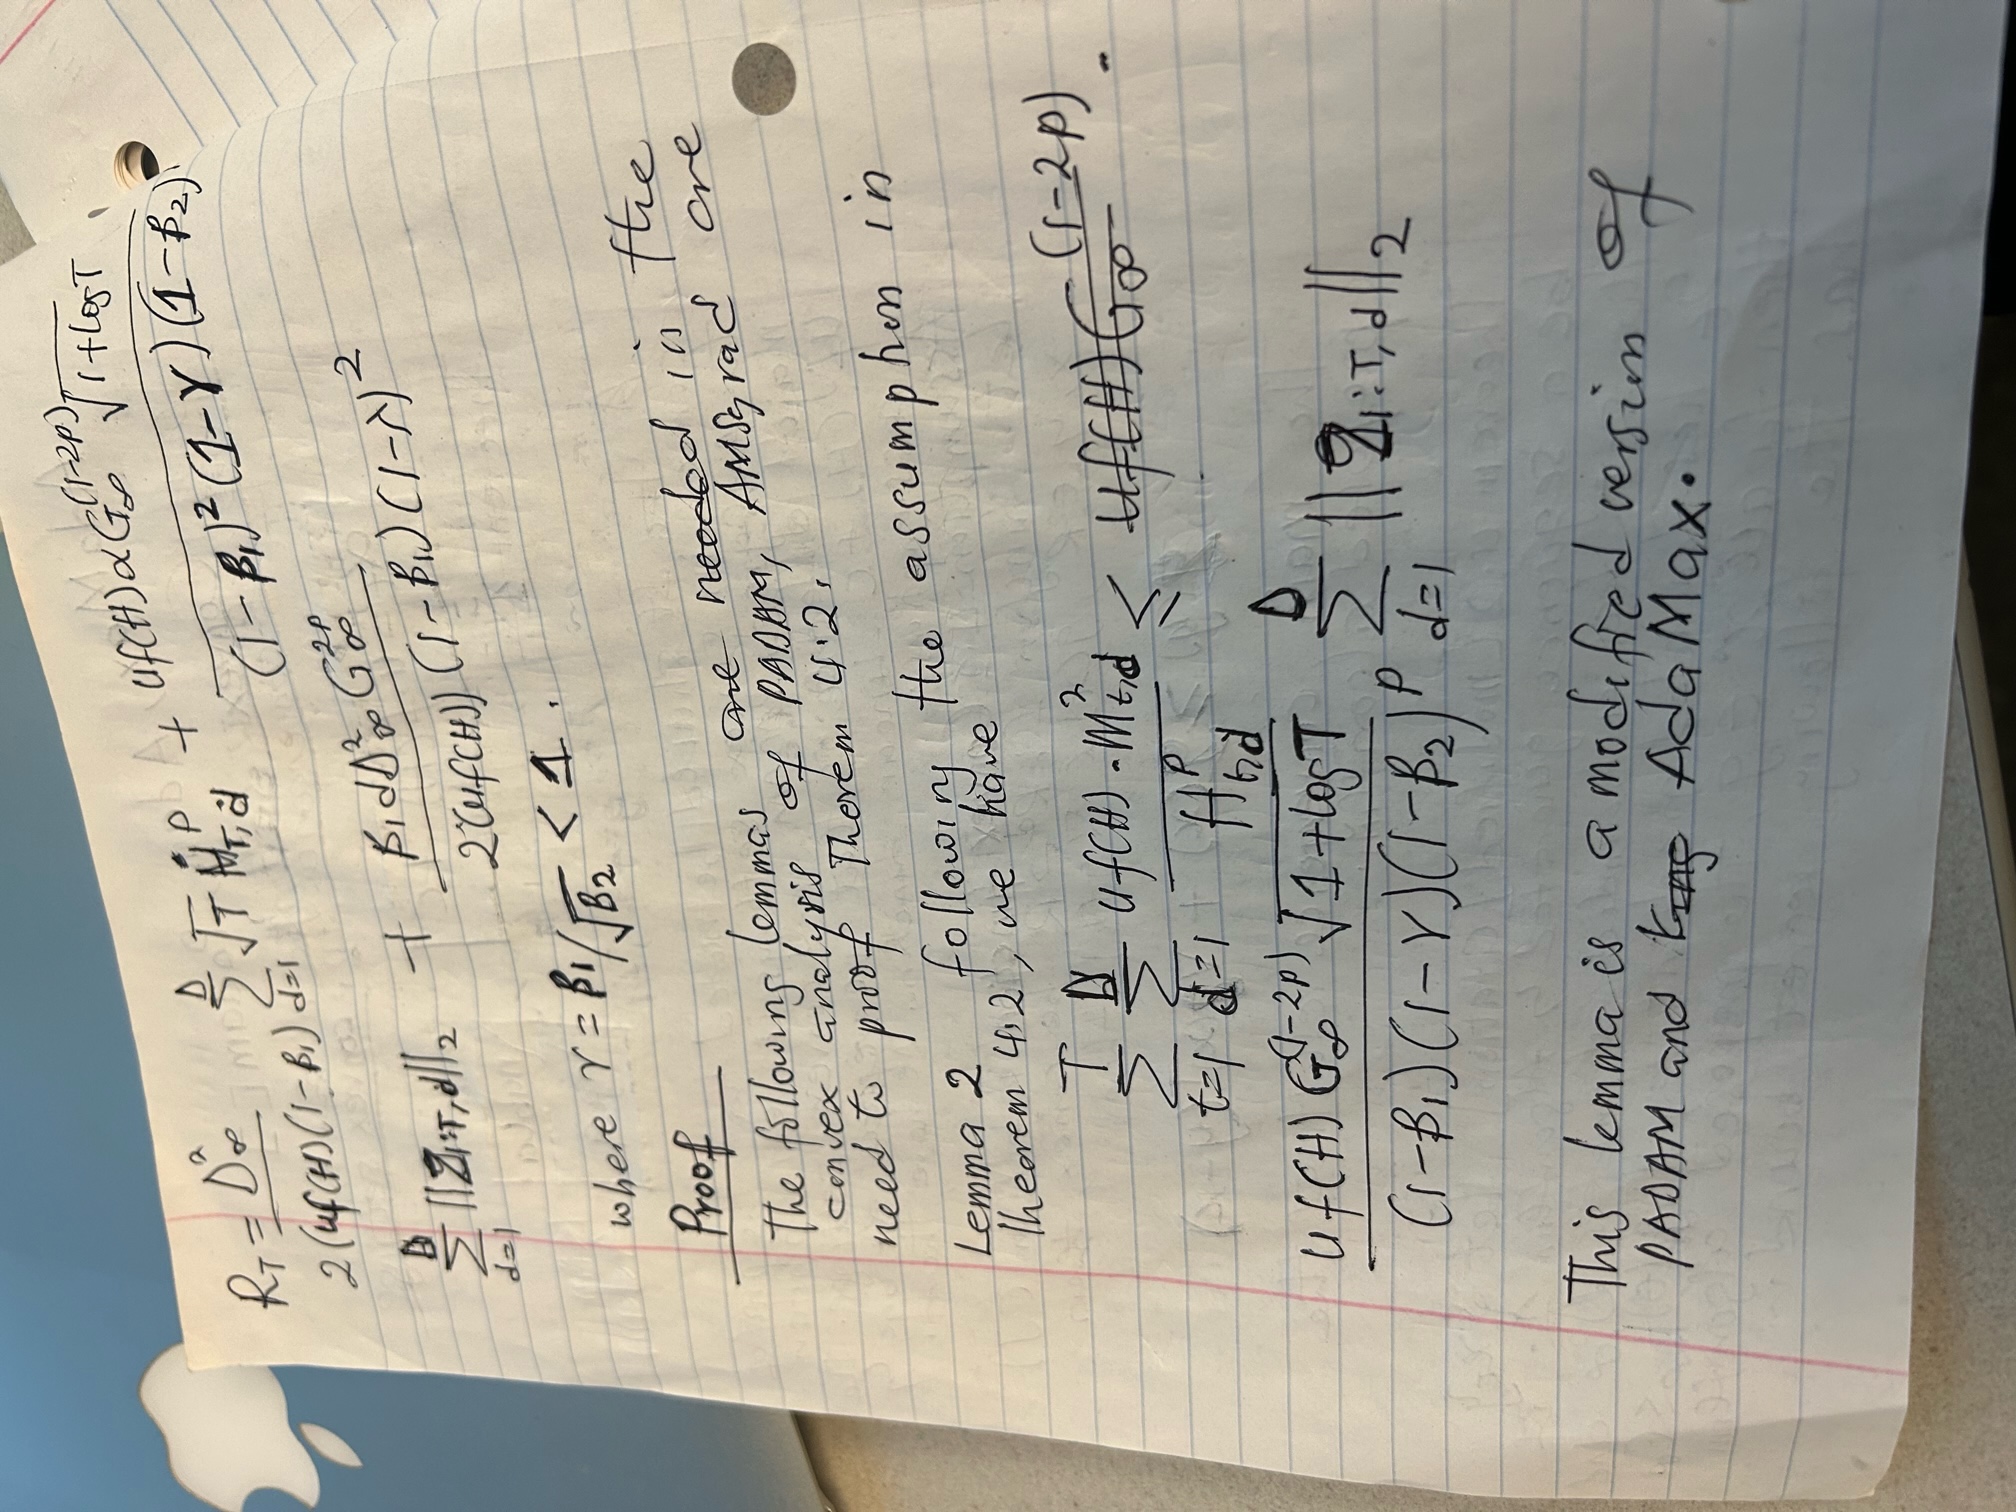 R_T = D²_∞ / 2(uf(H)(1-β₁) Σ_{d=1}^{D} √T Ĥ^p_{T,d} + uf(H)αG_∞^{(1-2p)} √1+logT / (1-β₁)²(1-γ)(1-β₂)
Σ_{d=1}^{D} ||g_{1:T,d}||₂ + β₁dD²_∞ G_∞^{2p} / 2(uf(H))(1-β₁)(1-λ)²
where γ = β₁/√β₂ < 1.
Proof
The following lemmas are needed in the
convex analysis of PADAM, AMSgrad are
need to proof Thorem 4.2.
Lemma 2 following the assumption in
Theorem 4.2, we have
Σ_{t=1}^{T} Σ_{d=1}^{D} uf(H) · M²_{t,d} / H^p_{t,d} ≤ uf(H)G_∞^{(1-2p)} .
uf(H) G_∞^{(1-2p)} √1+logT / (1-β₁)(1-γ)(1-β₂)^p Σ_{d=1}^{D} ||g_{1:T,d}||₂
This lemma is a modified version of
PADAM and King AdaMax.